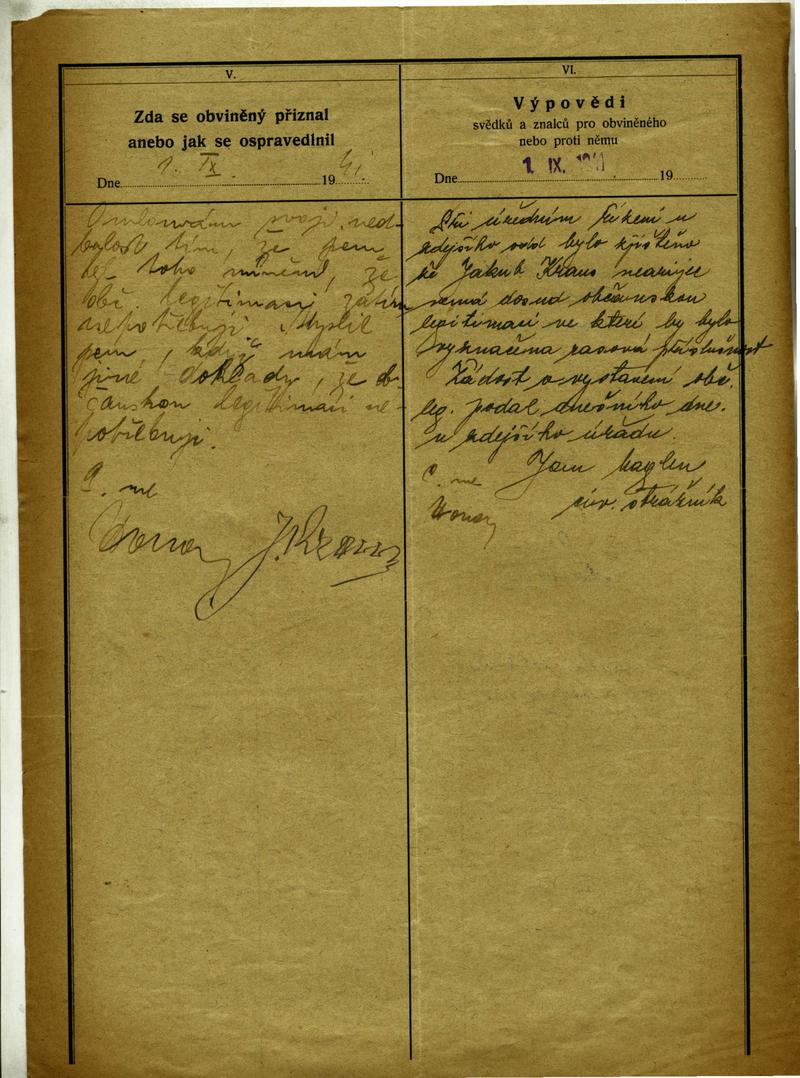 V.
Zda se obviněný přiznal
anebo jak se ospravedlnil
Dne 1. IX. 1941.
Omlouvám svoji ned-
balost tím, že jsem
byl toho mínění, že
obč. legitimaci zatím
nepotřebuji. Myslil
jsem, když mám
jiné doklady, že ob-
čanskou legitimaci ne-
potřebuji.
P. me
J. Kraus
VI.
Výpovědi
svědků a znalců pro obviněného
nebo proti němu
Dne 1. IX. 1941. 19
Při úředním řízení u
zdejšího odd bylo zjištěno
že Jakub Kraus nearijec
nemá dosud občanskou
legitimaci ve které by bylo
vyznačena rasová příslušnost
Žádost o vystavení obč.
leg. podal dnešního dne
u zdejšího úřadu.
Jan
civ. strážník